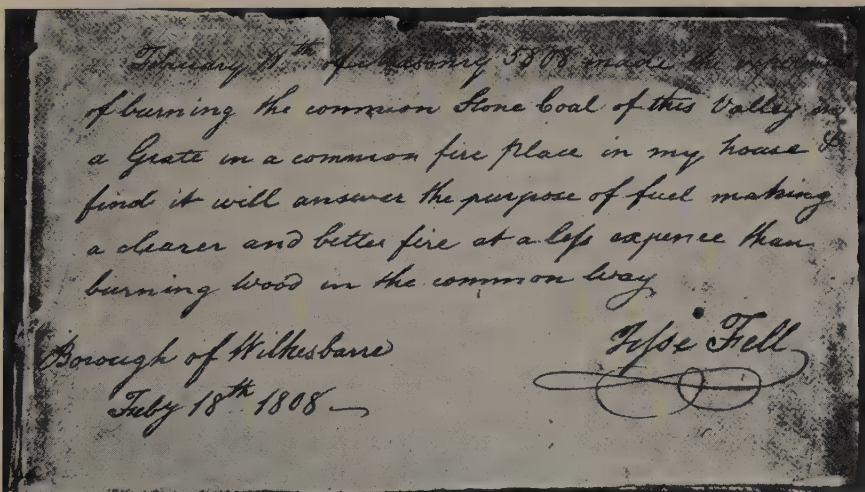 February 11th of Masonry 5808 made the experiment
of burning the common Stone Coal of this Valley in
a Grate in a common fire place in my house &
find it will answer the purpose of fuel making
a clearer and better fire at a less expence than
burning wood in the common way
Borough of Wilkesbarre
Feby 18th 1808
Jesse Fell